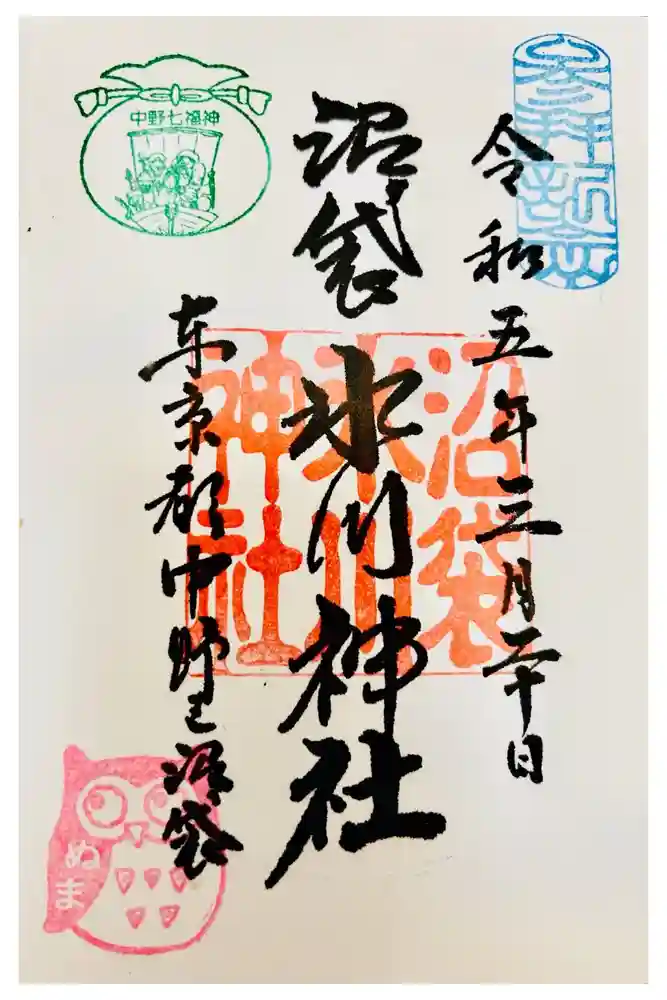 参拝記念
令和五年三月二十日
沼袋氷川神社
東京都中野区沼袋
沼袋
氷川
神社
中野七福神
ぬま